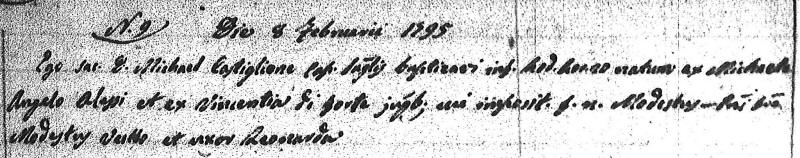 N. 9 Die 8 Februarii 1795
Ego sac. D. Michael Castiglione Cap. baptizavi inf. hod. hora 20 natum ex Michaele
Angelo Alepi et ex Vincentia di forte jug; cui imposit. f. n. Modestus
Modestus et uxor Leonarda